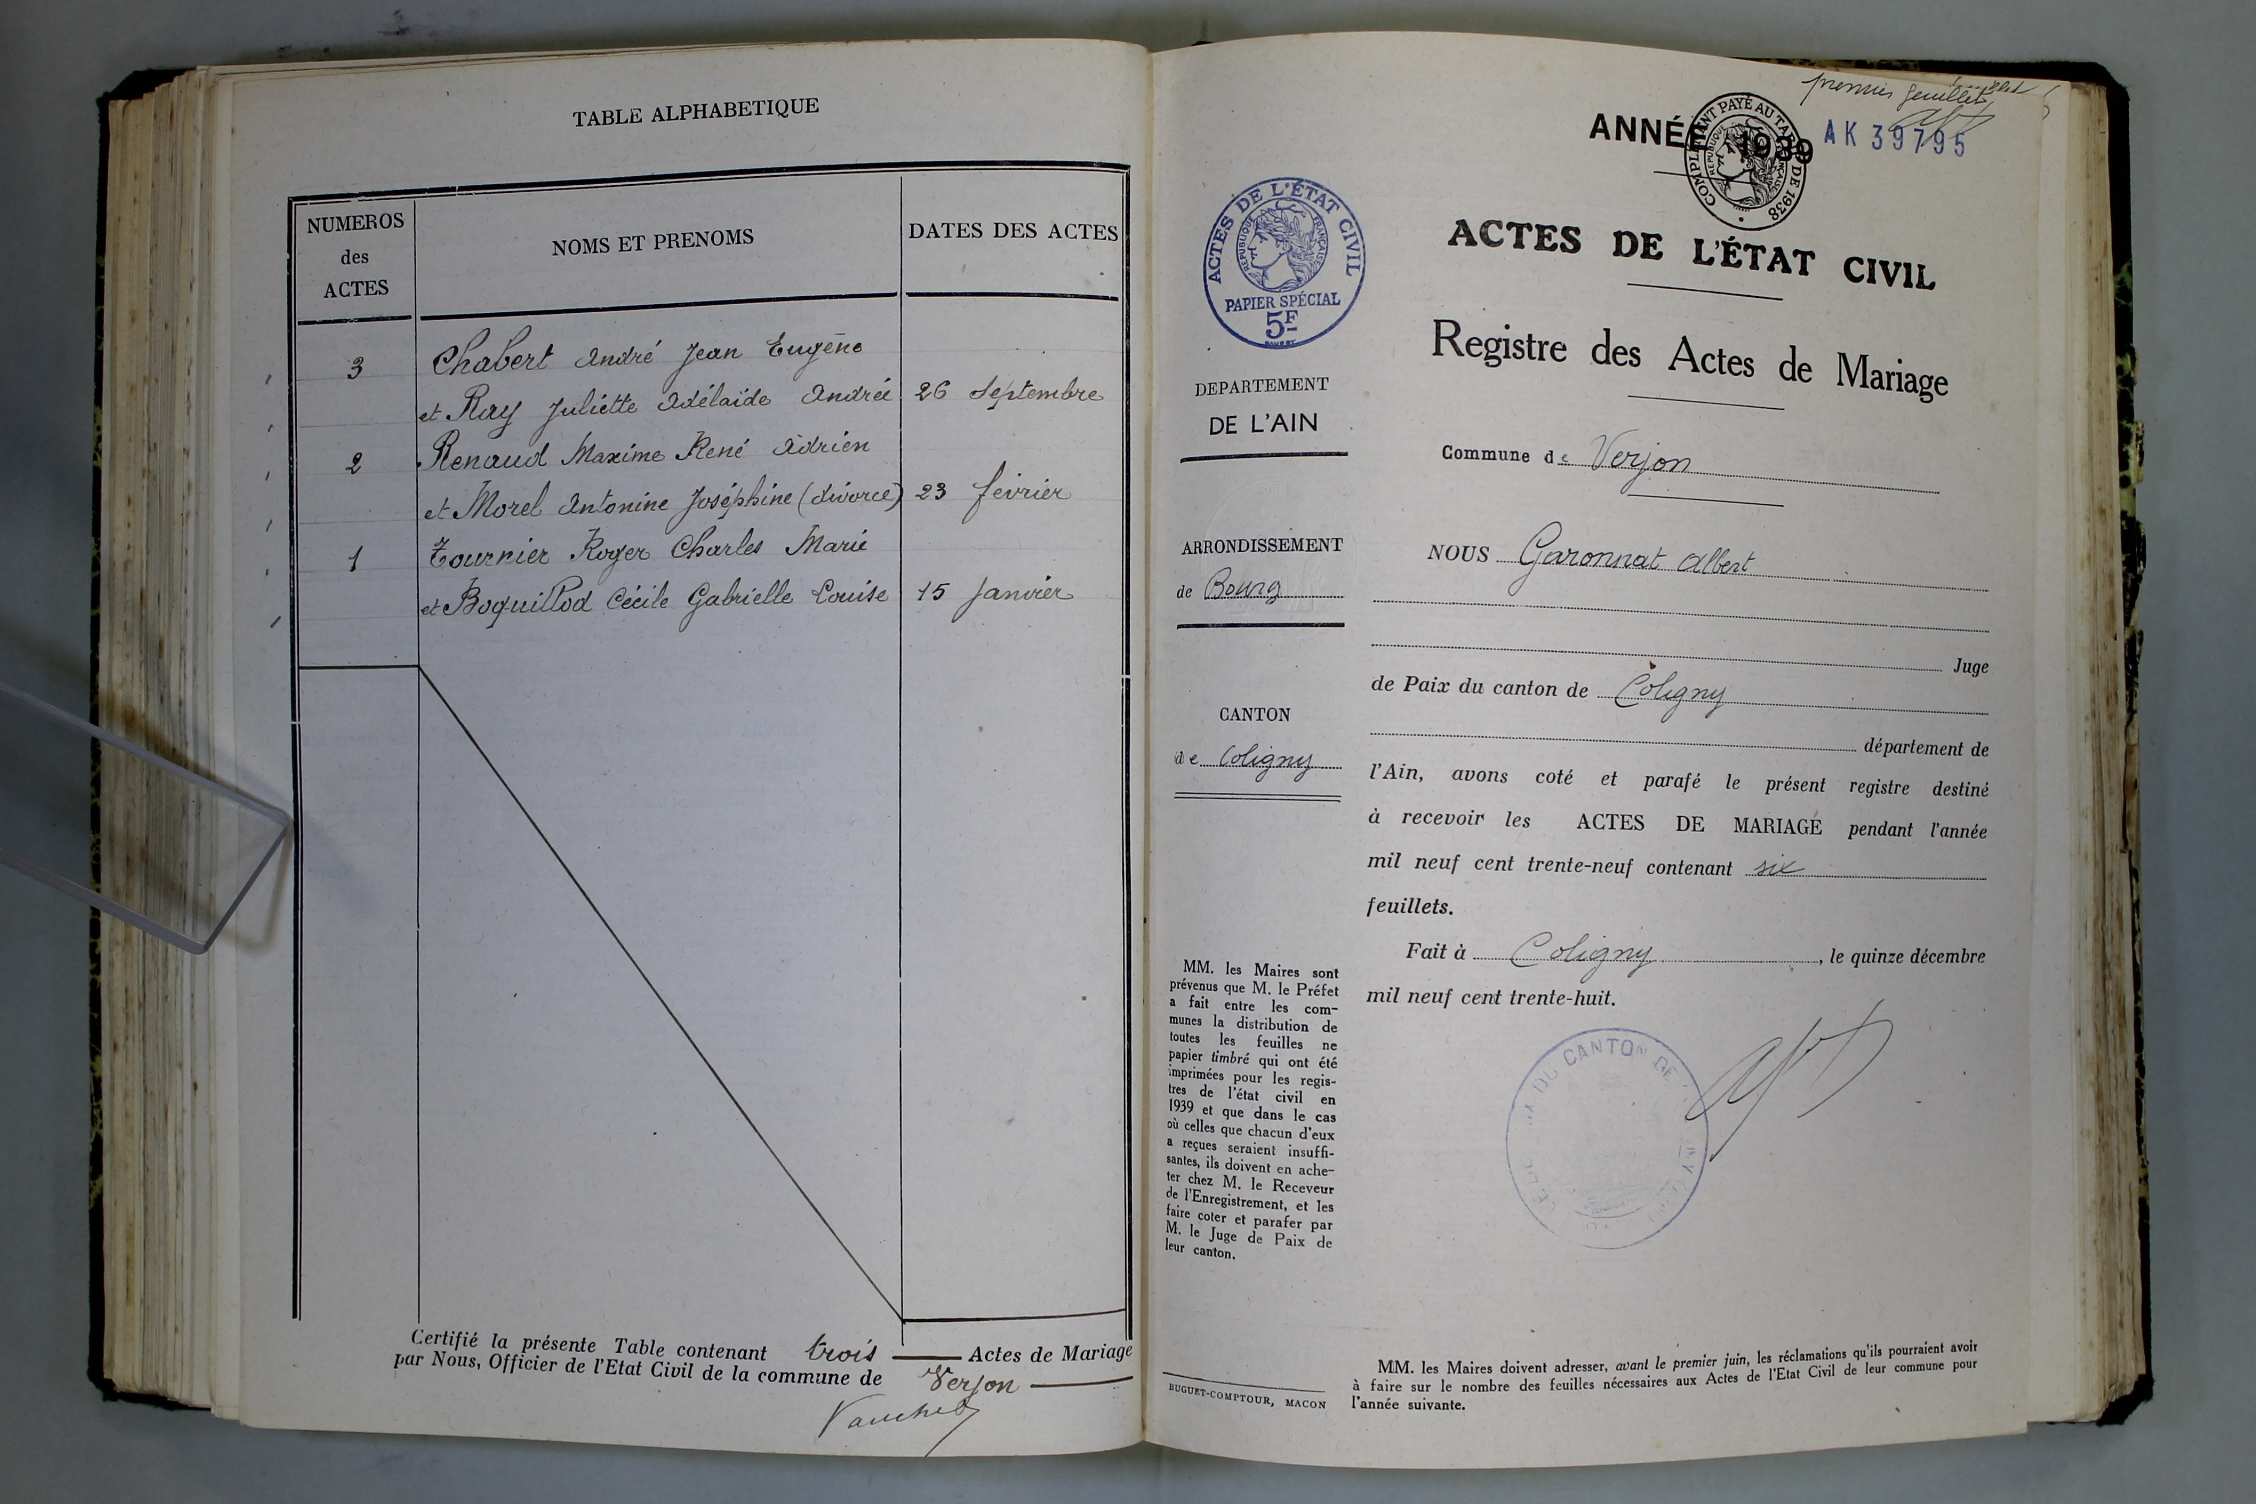 TABLE ALPHABETIQUE
NUMEROS
des
ACTES
NOMS ET PRENOMS
DATES DES ACTES
3 Chabert André Jean Eugène
et Ray Juliette Adélaïde Andrée 26 Septembre
2 Renaud Maxime René Adrien
et Morel Antonine Joséphine (divorce) 23 février
1 Tournier Roger Charles Marie
et Boquillod Cécile Gabrielle Louise 15 Janvier
Certifié la présente Table contenant trois Actes de Mariage
par Nous, Officier de l'Etat Civil de la commune de Verjon
premier feuillet
ANNÉE 1939
AK 39795
COMPLÉMENT PAYÉ AU TARIF DE 1938
RÉPUBLIQUE FRANÇAISE
ACTES DE L'ÉTAT CIVIL
RÉPUBLIQUE FRANÇAISE
PAPIER SPÉCIAL
5F
DEPARTEMENT
DE L'AIN
ARRONDISSEMENT
de Bourg
CANTON
de Coligny
MM. les Maires sont
prévenus que M. le Préfet
a fait entre les com-
munes la distribution de
toutes les feuilles ne
papier timbré qui ont été
imprimées pour les regis-
tres de l'état civil en
1939 et que dans le cas
où celles que chacun d'eux
a reçues seraient insuffi-
santes, ils doivent en ache-
ter chez M. le Receveur
de l'Enregistrement, et les
faire coter et parafer par
M. le Juge de Paix de
leur canton.
BUGUET-COMPTOUR, MACON
ACTES DE L'ÉTAT CIVIL
Registre des Actes de Mariage
Commune de Verjon
NOUS Garonnat Albert
Juge
de Paix du canton de Coligny
département de
l'Ain, avons coté et parafé le présent registre destiné
à recevoir les ACTES DE MARIAGE pendant l'année
mil neuf cent trente-neuf contenant six
feuillets.
Fait à Coligny, le quinze décembre
mil neuf cent trente-huit.
DU CANTON DE
MM. les Maires doivent adresser, avant le premier juin, les réclamations qu'ils pourraient avoir
à faire sur le nombre des feuilles nécessaires aux Actes de l'Etat Civil de leur commune pour
l'année suivante.